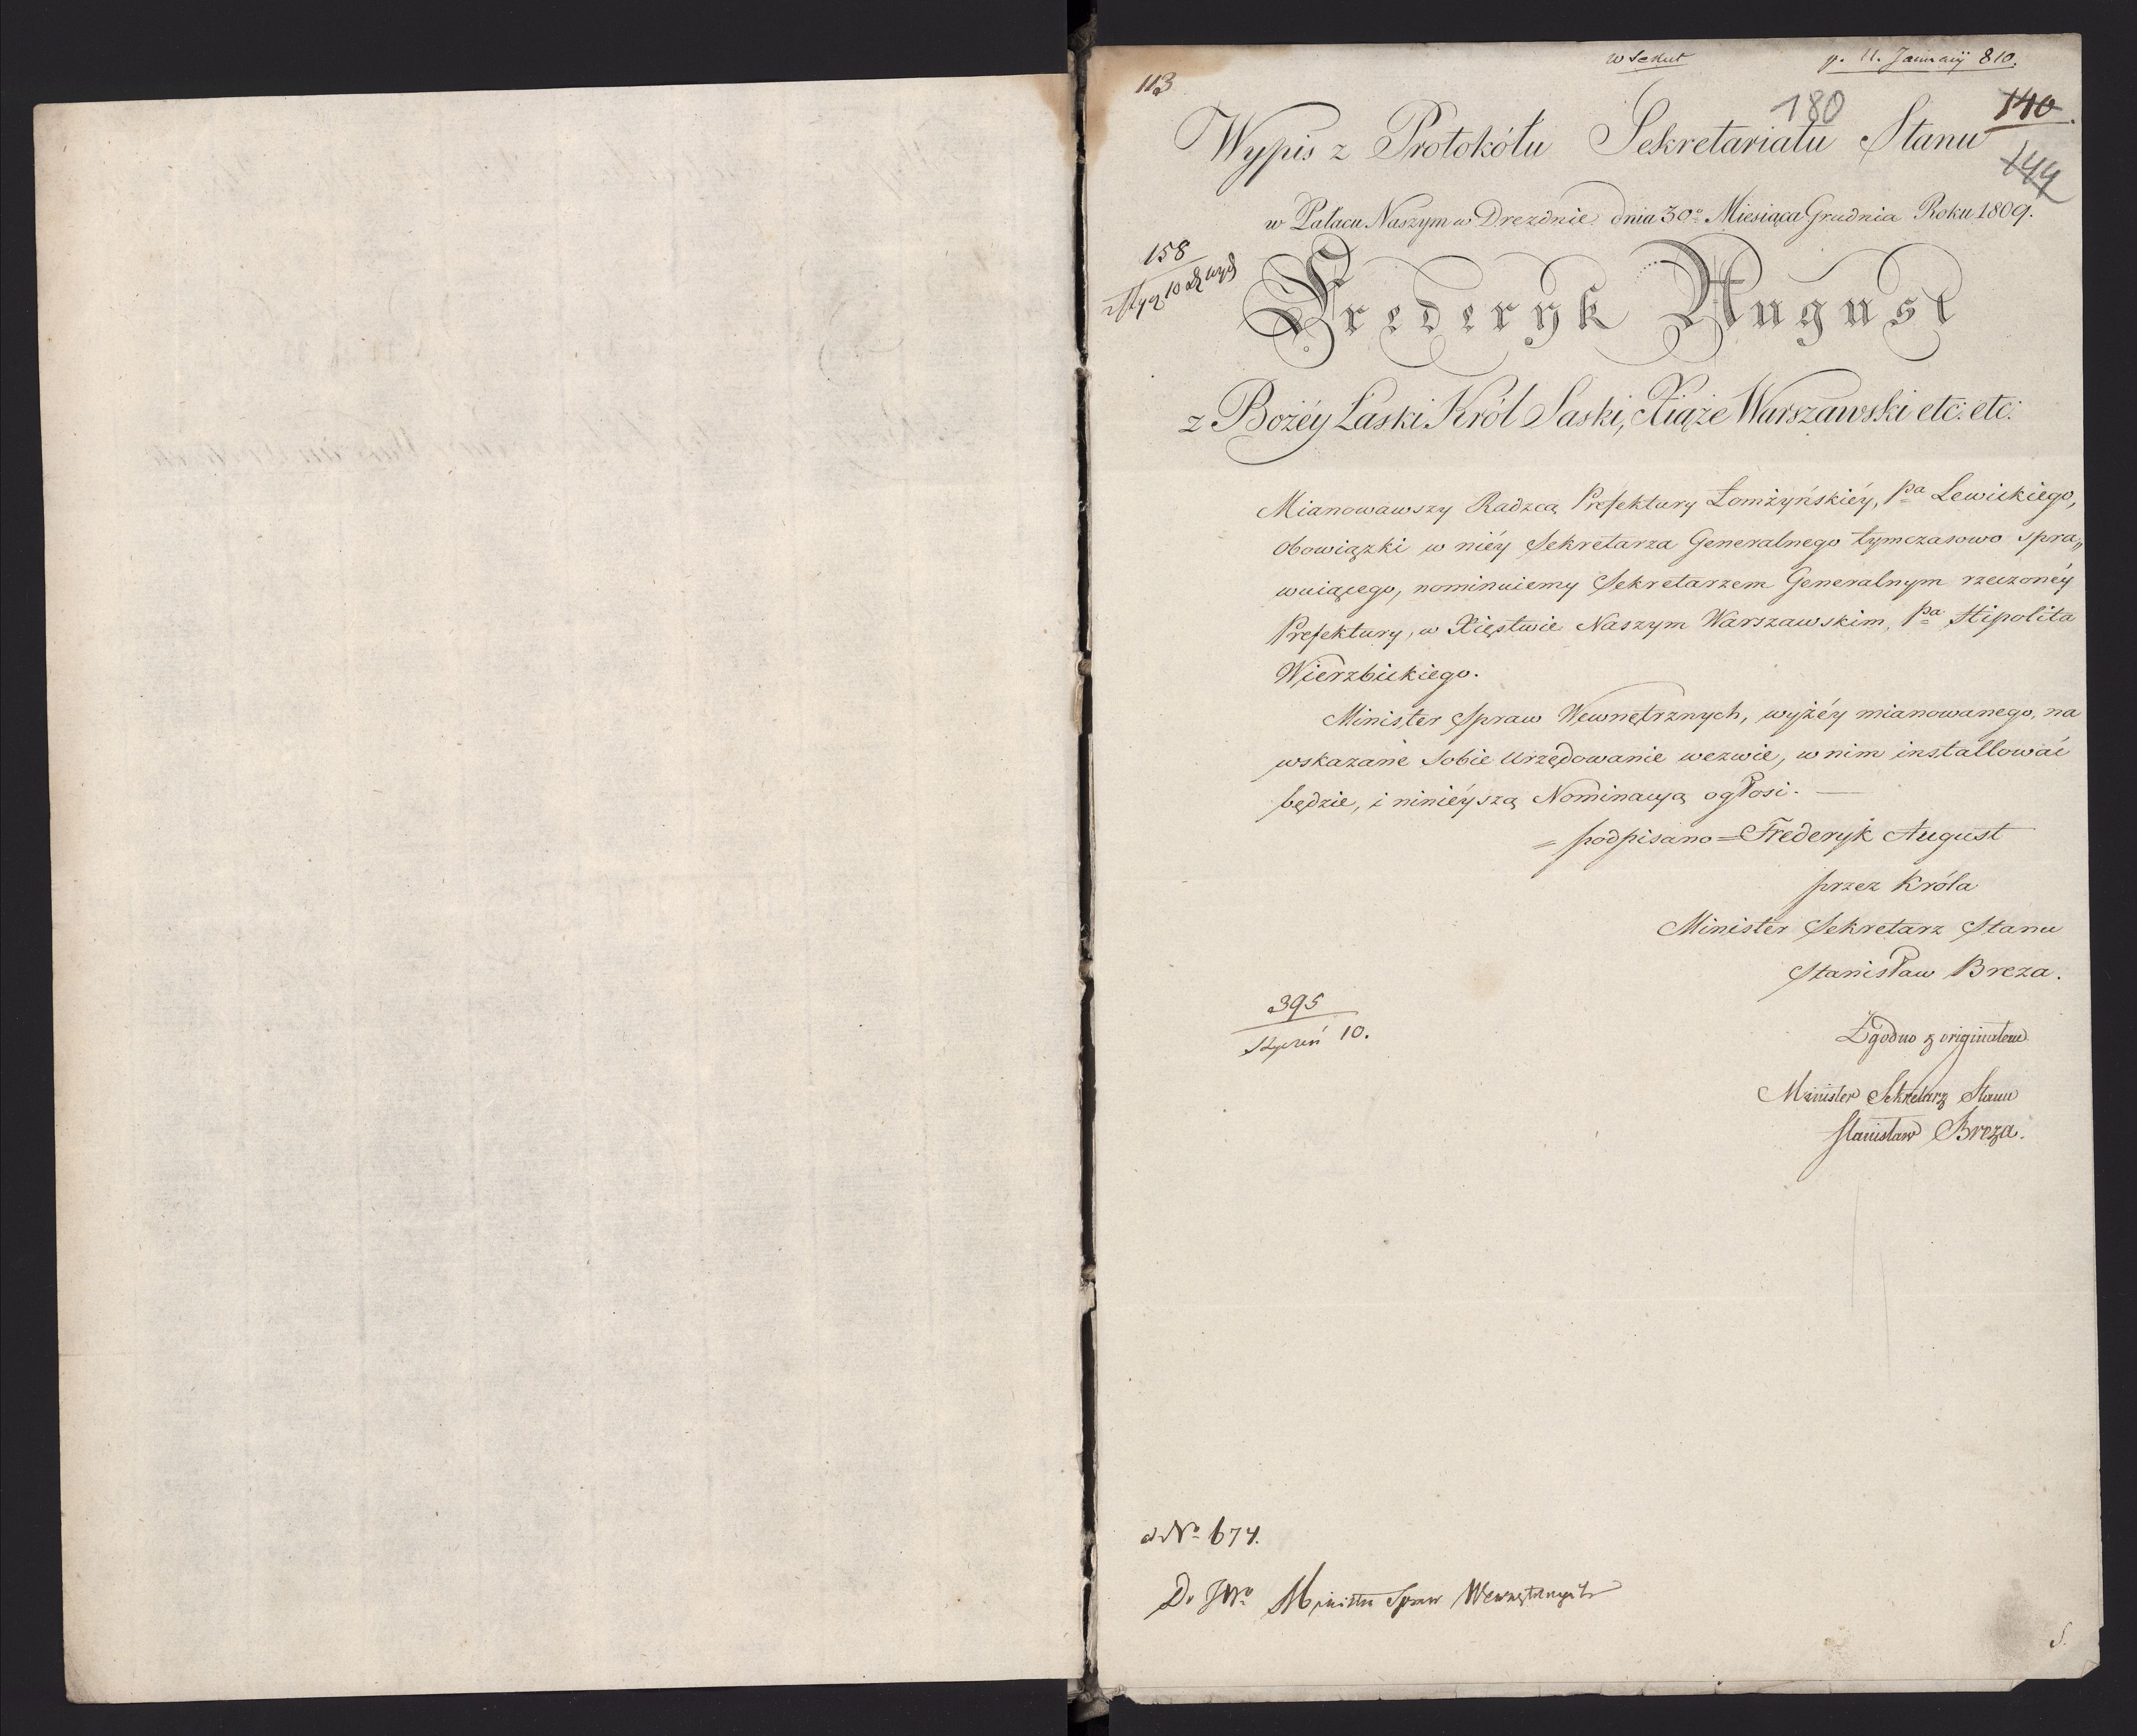 113
p. 11. Januarÿ 810.
180
140
144
Wypis z Protokółu Sekretariatu Stanu
w Pałacu Naszym w Dreźnie dnia 30º Miesiąca Grudnia Roku 1809.
158
Frederyk August
z Bożéy Łaski Król Saski, Xiąże Warszawski etc: etc:
Mianowawszy Radzcą Prefektury Łomżyńskiéy, Pa Lewickiego,
obowiązki w niéy Sekretarza Generalnego tymczasowo spra„
wuiącego, nominuiemy Sekretarzem Generalnym rzeczonéy
Prefektury, w Xięstwie Naszym Warszawskim, Pa Hipolita
Wierzbickiego.
Minister Spraw Wewnętrznych, wyżéy mianowanego, na
wskazane sobie Urzędowanie wezwie, w nim installować
będzie, i ninieyszą Nominacyą ogłosi. —
= podpisano = Frederyk August
przez Króla
Minister Sekretarz Stanu
Stanisław Breza.
395
Styczeń 10.
Zgodno z originałem
Minister Sekretarz Stanu
Stanisław Breza.
Nº 674.
Do JWº Ministra Spraw Wewnętrznych
S.